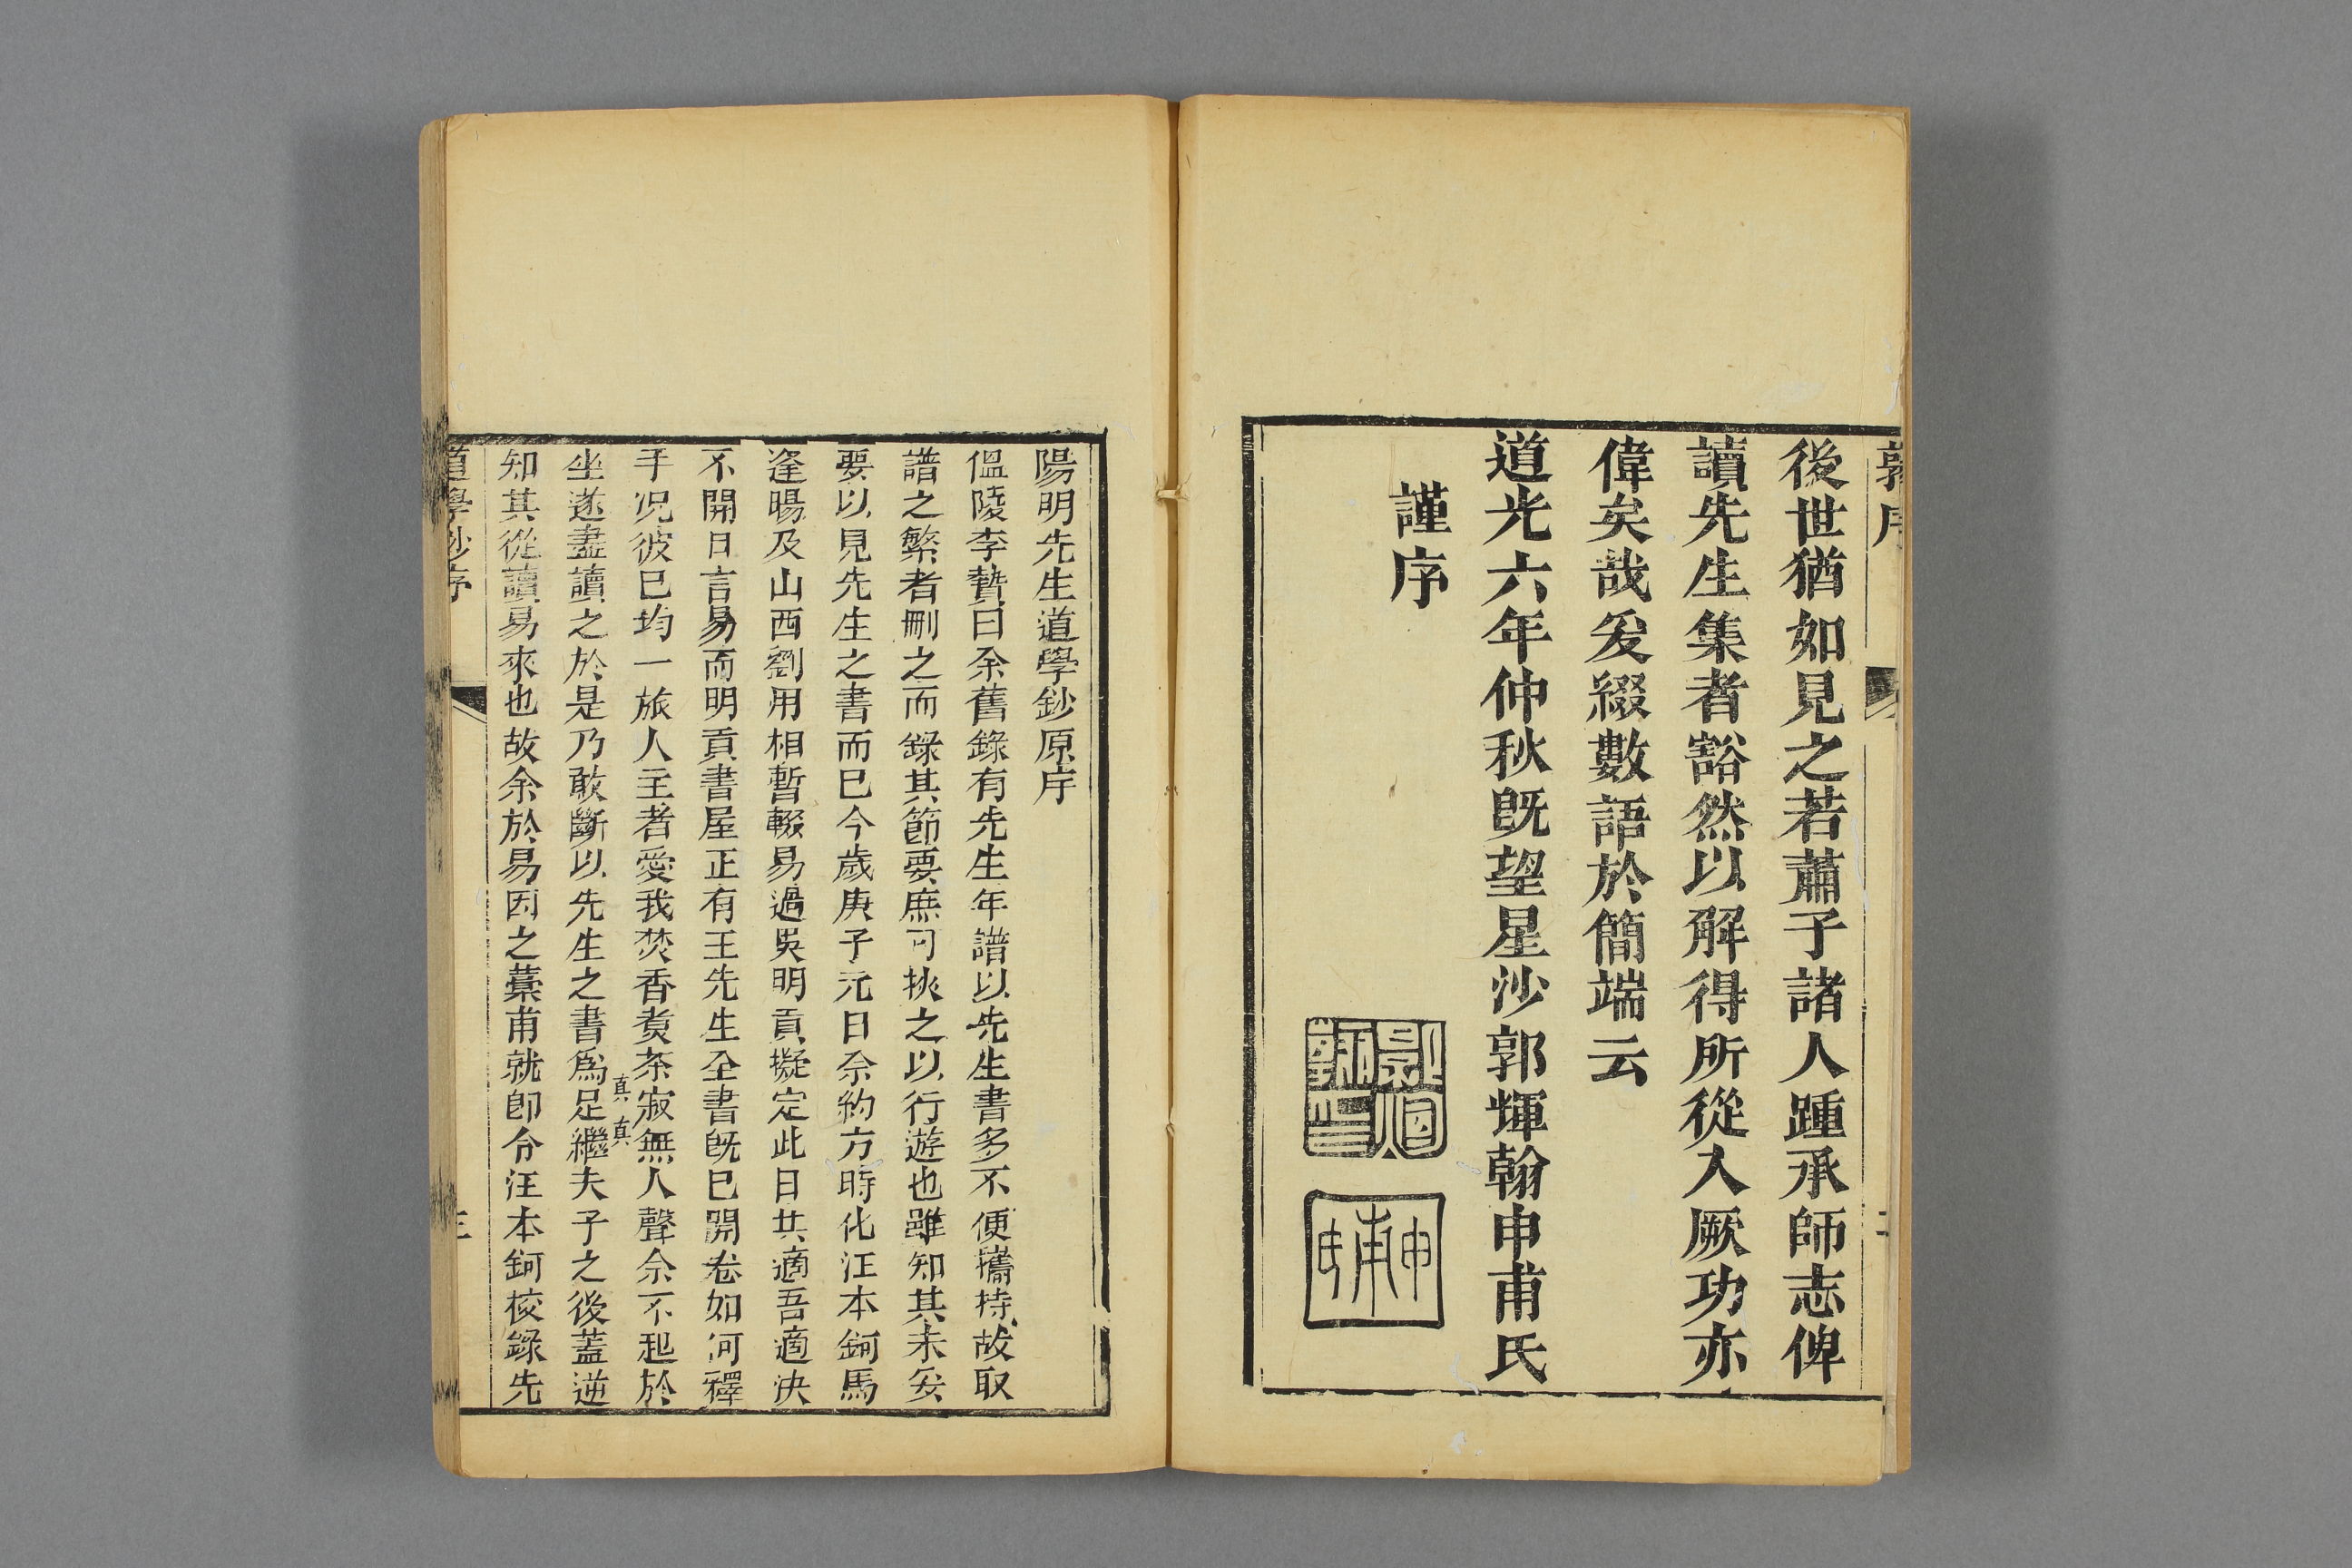 後世猶如見之若蕭子諸人踵承師志俾
讀先生集者豁然以解得所從入厥功亦
偉矣哉爰綴數語於簡端云
道光六年仲秋旣望星沙郭輝翰申甫氏
謹序
申甫氏
陽明先生道學鈔原序
溫陵李贄曰余舊錄有先生年譜以先生書多不便攜持故取
譜之繁者刪之而錄其節要庶可挾之以行遊也雖知其未妥
要以見先生之書而已今歲庚子元日余約方時化汪本鈳馬
逢暘及山西劉用相暫輟易過吳明貢擬定此日共適吾適決
不開口言易而明貢書屋正有王先生全書旣已開卷如何釋
手况彼已均一旅人主者愛我焚香煑茶寂無人聲余不起於
坐遂盡讀之於是乃敢斷以先生之書爲足繼夫子之後蓋逆
真 真
知其從讀易來也故余於易因之藁甫就卽令汪本鈳校錄先
道學鈔序
三